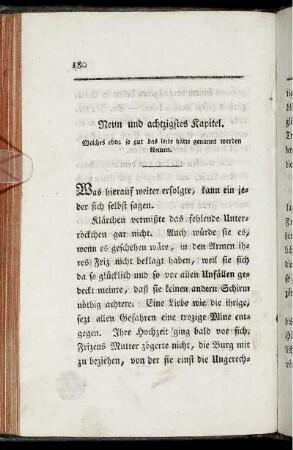 180
Neun und achtzigstes Kapitel.
Welches eben so gut das letzte hätte genannt werden
können.
Was hierauf weiter erfolgte, kann ein je-
der sich selbst sagen.
Klärchen vermißte das fehlende Unter-
röckchen gar nicht. Auch würde sie es,
wenn es geschehen wäre, in den Armen ih-
res Friz nicht beklagt haben, weil sie sich
da so glücklich und so vor allen Unfällen ge-
deckt meinte, daß sie keinen andern Schirm
nöthig achtete. Eine Liebe wie die ihrige,
sezt allen Gefahren eine trozige Mine ent-
gegen. Ihre Hochzeit ging bald vor sich;
Frizens Mutter zögerte nicht, die Burg mit
zu beziehen, von der sie einst die Ungerech-